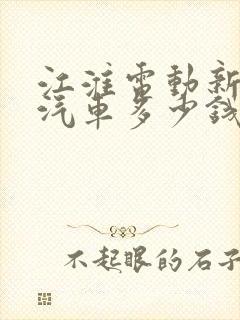 江淮電動新
汽車多少錢
不起眼的石子